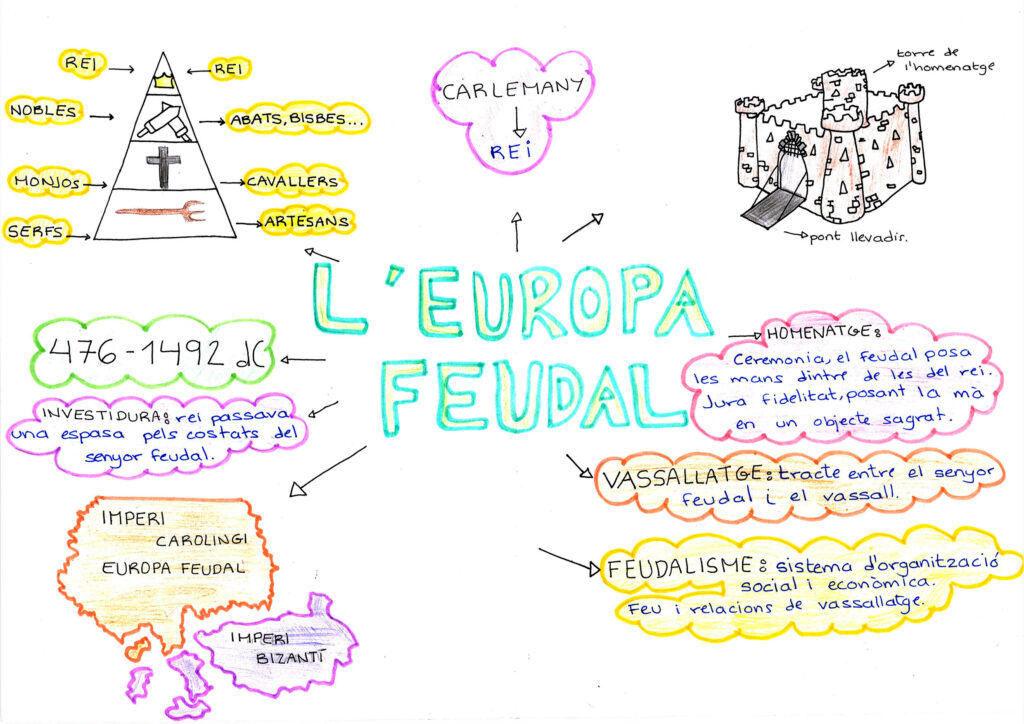 REI
REI
NOBLES
ABATS, BISBES...
MONJOS
CAVALLERS
SERFS
ARTESANS
CARLEMANY
REI
torre de
l'homenatge
pont llevadis.
L'EUROPA
FEUDAL
476-1492 dC
INVESTIDURA: rei passava
una espasa pels costats del
senyor feudal.
IMPERI
CAROLINGI
EUROPA FEUDAL
IMPERI
BIZANTÍ
HOMENATGE:
Ceremonia, el feudal posa
les mans dintre de les del rei.
Jura fidelitat, posant la mà
en un objecte sagrat.
VASSALLATGE: tracte entre el senyor
feudal i el vassall.
FEUDALISME: sistema d'organització
social i econòmica.
Feu i relacions de vassallatge.